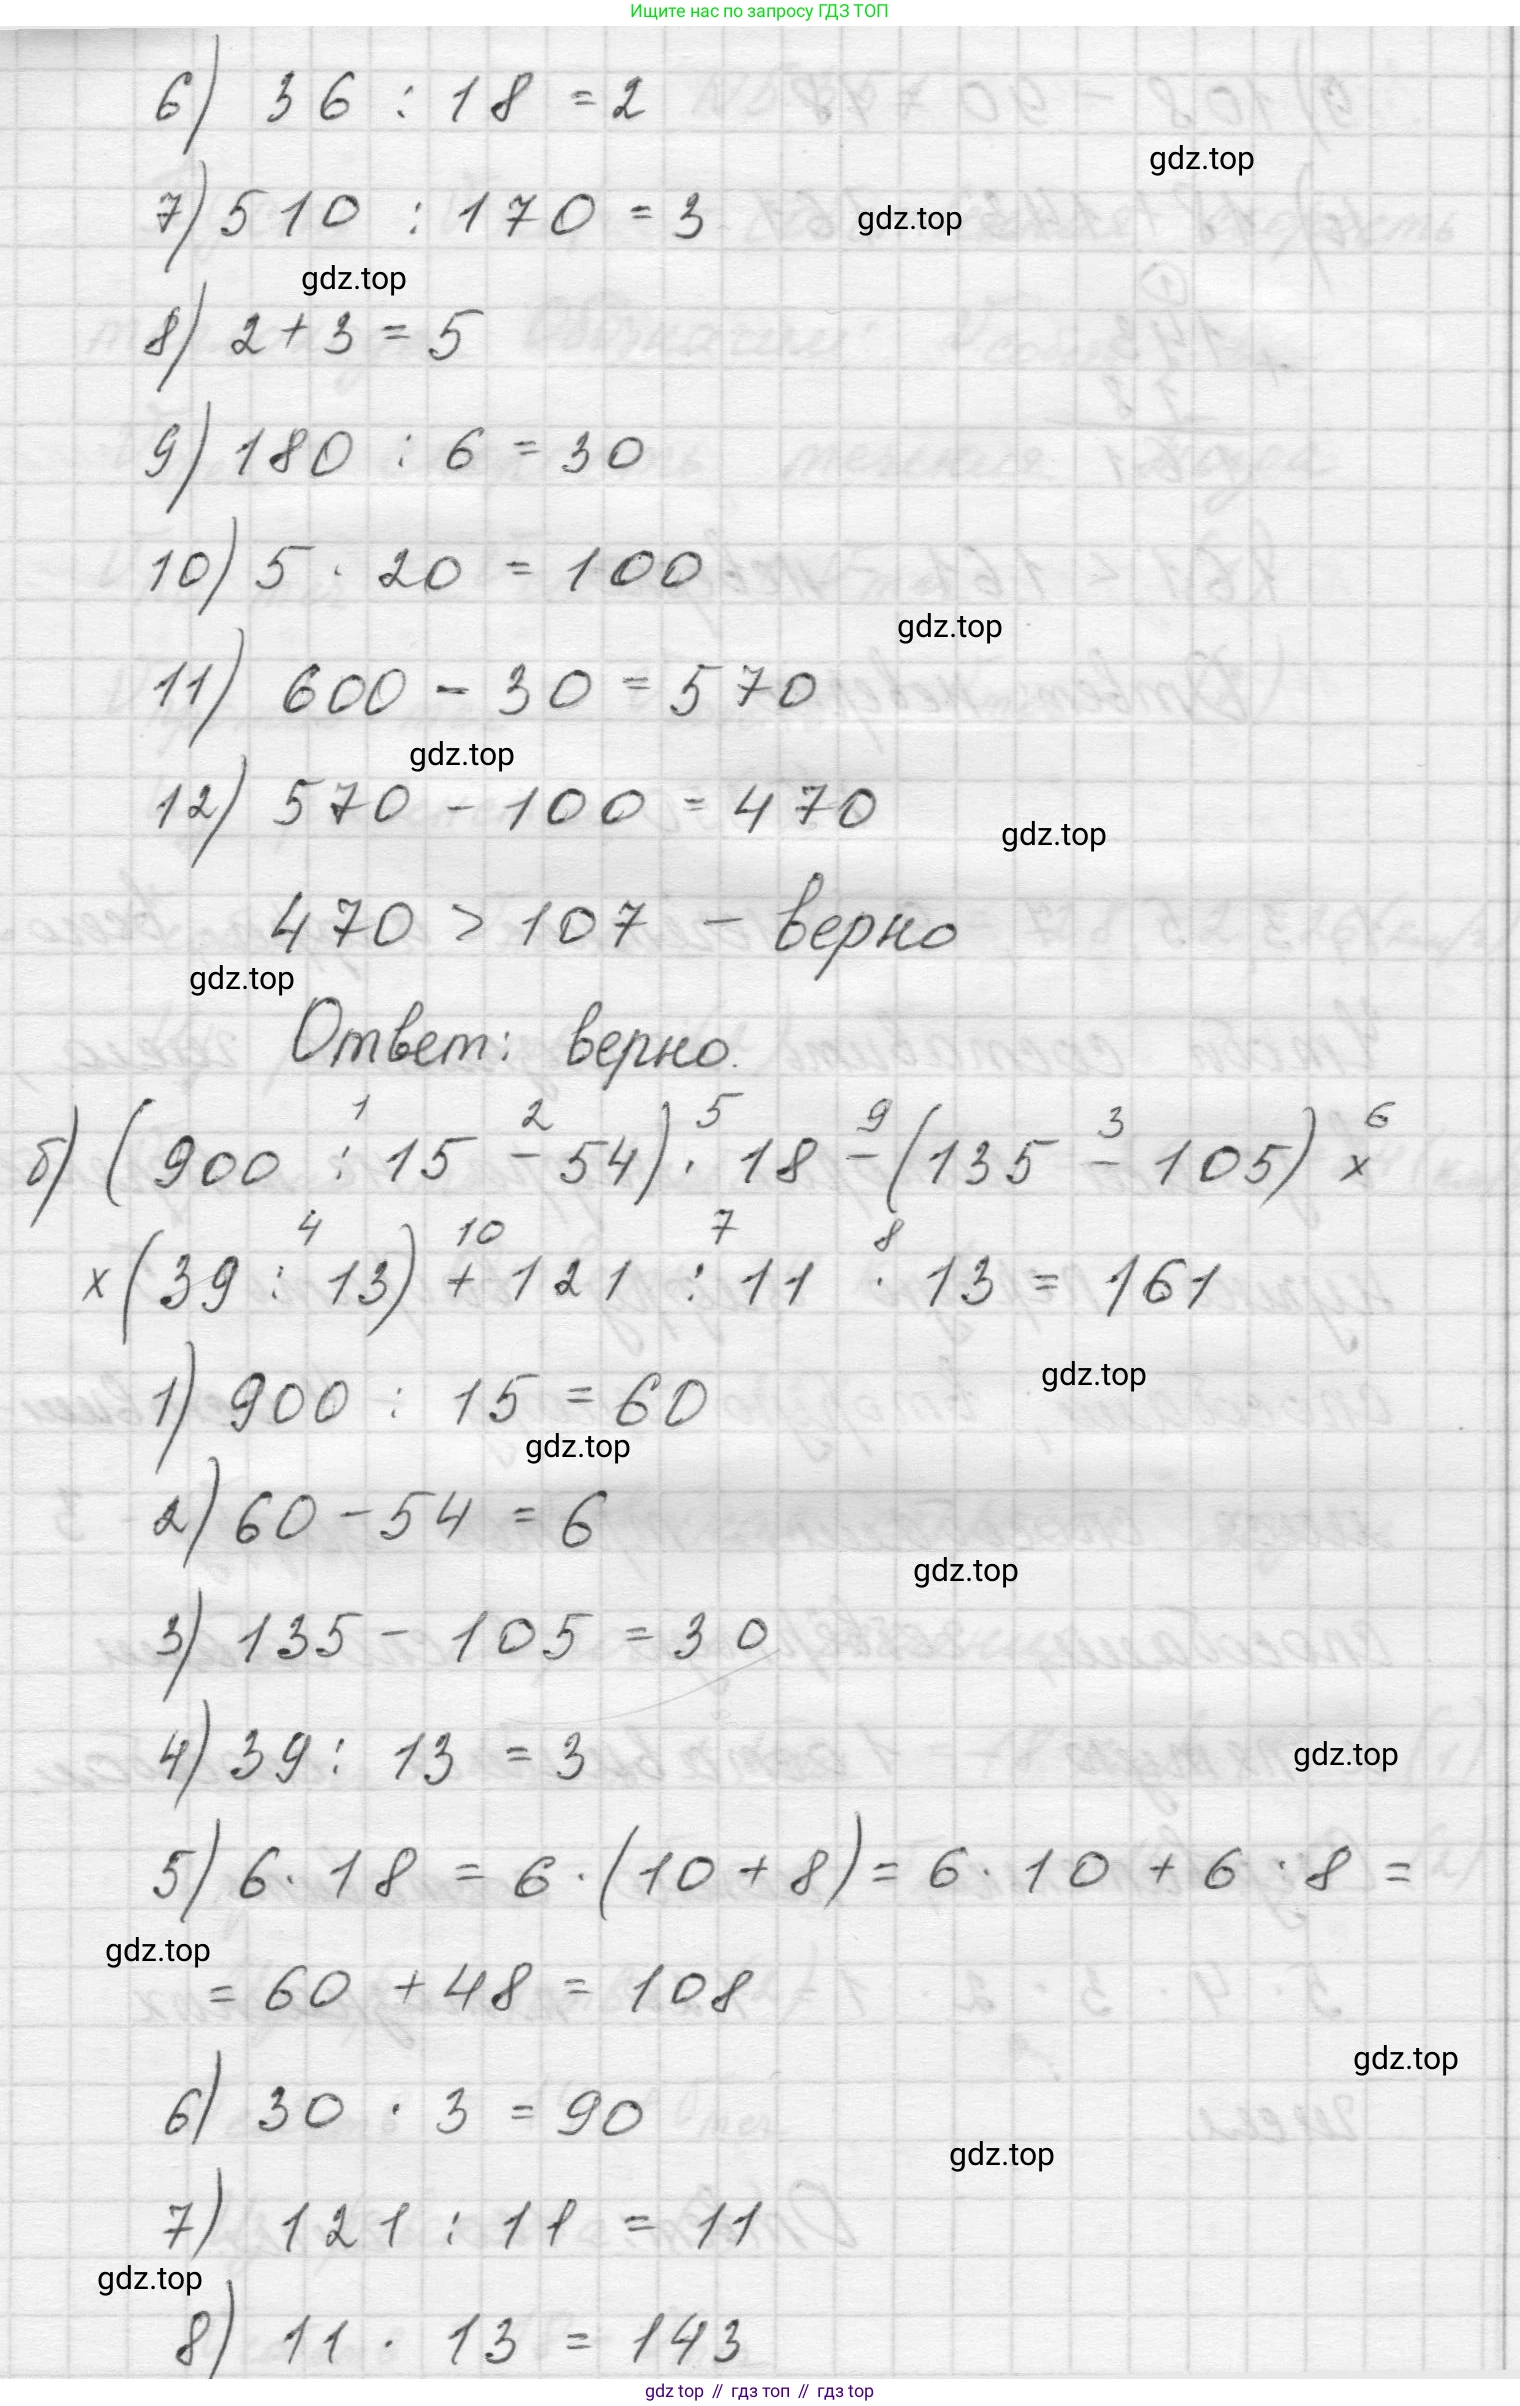 Ищите нас по запросу ГДЗ ТОП
6) 36 : 18 = 2
gdz.top
7) 510 : 170 = 3
gdz.top
gdz.top
8) 2 + 3 = 5
9) 180 : 6 = 30
10) 5 · 20 = 100
gdz.top
11) 600 - 30 = 570
gdz.top
12) 570 - 100 = 470
gdz.top
470 > 107 - верно
gdz.top
Ответ: верно.
1 2 5 9 3 6
б) (900 : 15 - 54) · 18 - (135 - 105) ×
4 10 7 8
× (39 : 13) + 121 : 11 · 13 = 161
gdz.top
1) 900 : 15 = 60
gdz.top
2) 60 - 54 = 6
gdz.top
3) 135 - 105 = 30
4) 39 : 13 = 3
gdz.top
5) 6 · 18 = 6 · (10 + 8) = 6 · 10 + 6 · 8 =
gdz.top
= 60 + 48 = 108
gdz.top
6) 30 · 3 = 90
gdz.top
7) 121 : 11 = 11
gdz.top
8) 11 · 13 = 143
gdz top // гдз топ // гдз top